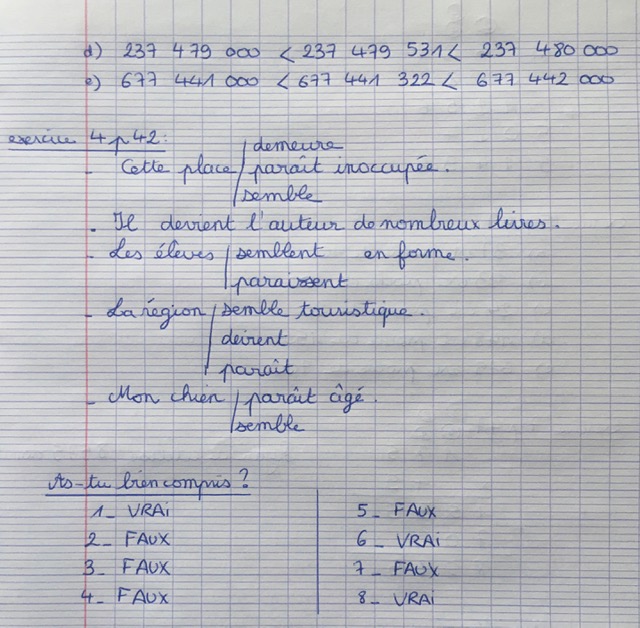 d) 237 479 000 < 237 479 531 < 237 480 000
e) 677 441 000 < 677 441 322 < 677 442 000
exercice 4 p 42:
demeure
- Cette place / paraît inoccupée.
semble
- Il devient l'auteur de nombreux livres.
- Les élèves / semblent en forme.
paraissent
- La région / semble touristique.
deirent
paraît
- Mon chien / paraît âgé.
semble
As-tu bien compris ?
1_ VRAi
2_ FAUX
3_ FAUX
4_ FAUX
5_ FAUX
6_ VRAi
7_ FAUX
8_ VRAi